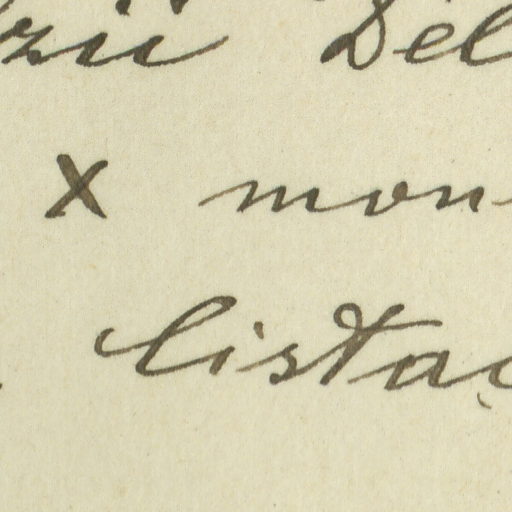 zii Del
x mon
listac